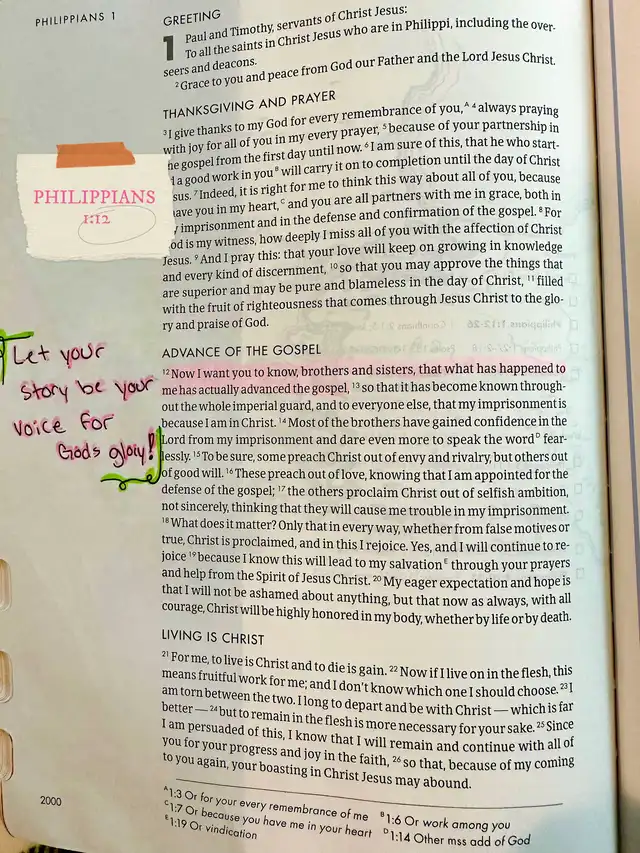 PHILIPPIANS 1
GREETING
1 Paul and Timothy, servants of Christ Jesus:
To all the saints in Christ Jesus who are in Philippi, including the over-
seers and deacons.
2 Grace to you and peace from God our Father and the Lord Jesus Christ.
THANKSGIVING AND PRAYER
3 I give thanks to my God for every remembrance of you,A 4 always praying
with joy for all of you in my every prayer, 5 because of your partnership in
he gospel from the first day until now. 6 I am sure of this, that he who start-
a good work in you B will carry it on to completion until the day of Christ
sus. 7 Indeed, it is right for me to think this way about all of you, because
have you in my heart,C and you are all partners with me in grace, both in
imprisonment and in the defense and confirmation of the gospel. 8 For
od is my witness, how deeply I miss all of you with the affection of Christ
Jesus. 9 And I pray this: that your love will keep on growing in knowledge
and every kind of discernment, 10 so that you may approve the things that
are superior and may be pure and blameless in the day of Christ, 11 filled
with the fruit of righteousness that comes through Jesus Christ to the glo-
ry and praise of God.
PHILIPPIANS
1:12
ADVANCE OF THE GOSPEL
12 Now I want you to know, brothers and sisters, that what has happened to
me has actually advanced the gospel, 13 so that it has become known through-
out the whole imperial guard, and to everyone else, that my imprisonment is
because I am in Christ. 14 Most of the brothers have gained confidence in the
Lord from my imprisonment and dare even more to speak the word D fear-
lessly. 15 To be sure, some preach Christ out of envy and rivalry, but others out
of good will. 16 These preach out of love, knowing that I am appointed for the
defense of the gospel; 17 the others proclaim Christ out of selfish ambition,
not sincerely, thinking that they will cause me trouble in my imprisonment.
18 What does it matter? Only that in every way, whether from false motives or
true, Christ is proclaimed, and in this I rejoice. Yes, and I will continue to re-
joice 19 because I know this will lead to my salvation E through your prayers
and help from the Spirit of Jesus Christ. 20 My eager expectation and hope is
that I will not be ashamed about anything, but that now as always, with all
courage, Christ will be highly honored in my body, whether by life or by death.
Let your
story be your
voice for
Gods glory!
LIVING IS CHRIST
21 For me, to live is Christ and to die is gain. 22 Now if I live on in the flesh, this
means fruitful work for me; and I don't know which one I should choose. 23 I
am torn between the two. I long to depart and be with Christ — which is far
better — 24 but to remain in the flesh is more necessary for your sake. 25 Since
I am persuaded of this, I know that I will remain and continue with all of
you for your progress and joy in the faith, 26 so that, because of my coming
to you again, your boasting in Christ Jesus may abound.
A 1:3 Or for your every remembrance of me B 1:6 Or work among you
C 1:7 Or because you have me in your heart D 1:14 Other mss add of God
E 1:19 Or vindication
2000